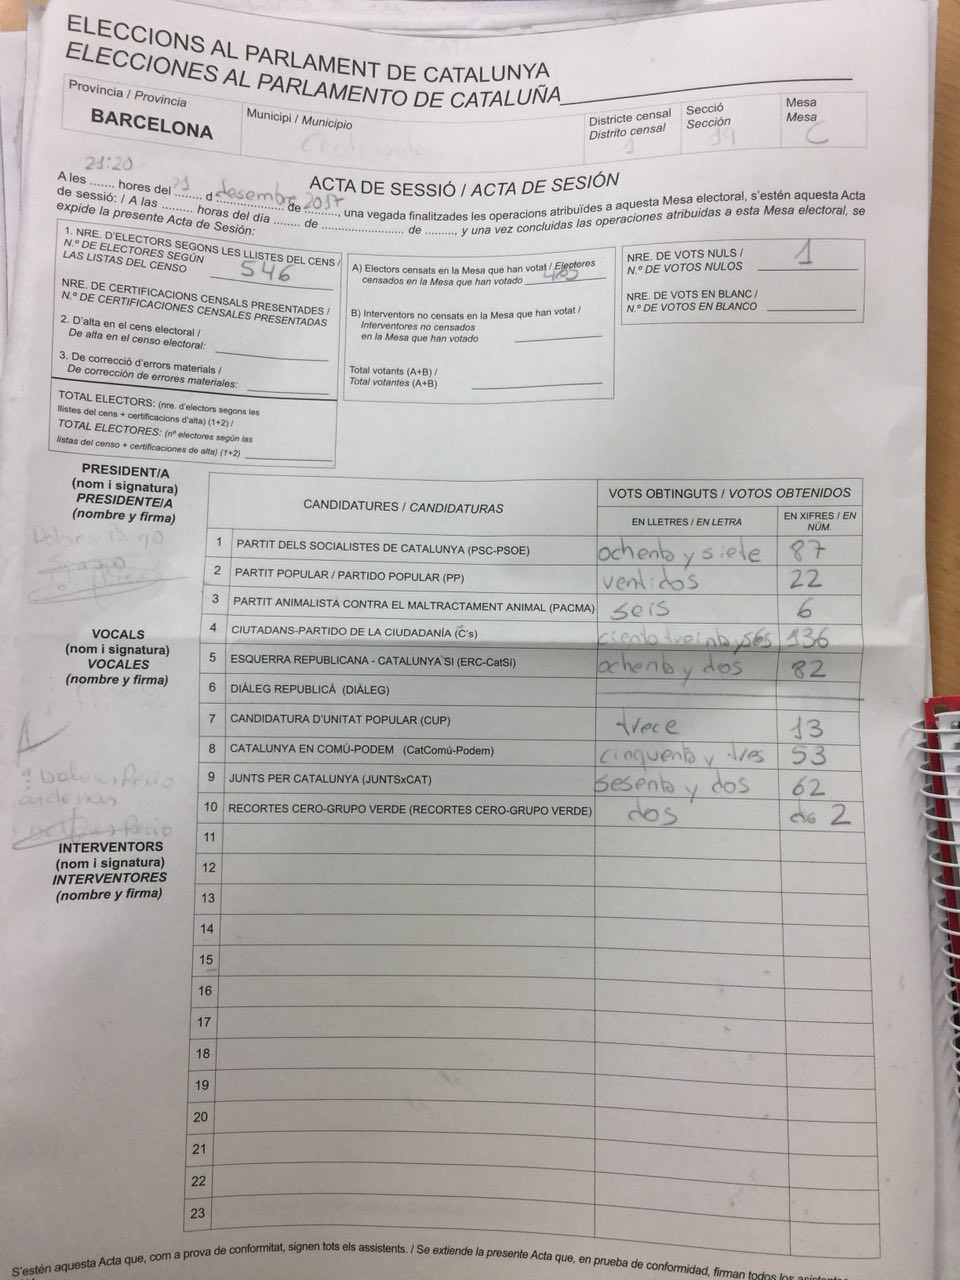 ELECCIONS AL PARLAMENT DE CATALUNYA
ELECCIONES AL PARLAMENTO DE CATALUÑA
Província / Provincia
BARCELONA
Municipi / Municipio
Districte censal
Distrito censal
1
Secció
Sección
19
Mesa
Mesa
C
ACTA DE SESSIÓ / ACTA DE SESIÓN
21:20
A les ....... hores del 21 d desembre de 2017, una vegada finalitzades les operacions atribuïdes a aquesta Mesa electoral, s'estén aquesta Acta
de sessió: / A las ......... horas del día ....... de ........................ de ........, y una vez concluidas las operaciones atribuidas a esta Mesa electoral, se
expide la presente Acta de Sesión:
1. NRE. D'ELECTORS SEGONS LES LLISTES DEL CENS /
N.º DE ELECTORES SEGÚN
LAS LISTAS DEL CENSO
546
NRE. DE CERTIFICACIONS CENSALS PRESENTADES /
N.º DE CERTIFICACIONES CENSALES PRESENTADAS
2. D'alta en el cens electoral /
De alta en el censo electoral:
3. De correcció d'errors materials /
De corrección de errores materiales:
TOTAL ELECTORS: (nre. d'electors segons les
llistes del cens + certificacions d'alta) (1+2) /
TOTAL ELECTORES: (nº electores según las
listas del censo + certificaciones de alta) (1+2)
A) Electors censats en la Mesa que han votat / Electores
censados en la Mesa que han votado
B) Interventors no censats en la Mesa que han votat /
Interventores no censados
en la Mesa que han votado
Total votants (A+B) /
Total votantes (A+B)
NRE. DE VOTS NULS /
N.º DE VOTOS NULOS
1
NRE. DE VOTS EN BLANC /
N.º DE VOTOS EN BLANCO
PRESIDENT/A
(nom i signatura)
PRESIDENTE/A
(nombre y firma)
VOCALS
(nom i signatura)
VOCALES
(nombre y firma)
Dolores Recio
Cárdenas
Recio
INTERVENTORS
(nom i signatura)
INTERVENTORES
(nombre y firma)
CANDIDATURES / CANDIDATURAS
VOTS OBTINGUTS / VOTOS OBTENIDOS
EN LLETRES / EN LETRA
EN XIFRES / EN NÚM.
1 PARTIT DELS SOCIALISTES DE CATALUNYA (PSC-PSOE) ochenta y siete 87
2 PARTIT POPULAR / PARTIDO POPULAR (PP) ventidos 22
3 PARTIT ANIMALISTA CONTRA EL MALTRACTAMENT ANIMAL (PACMA) seis 6
4 CIUTADANS-PARTIDO DE LA CIUDADANÍA (C's) ciento treinta y seis 136
5 ESQUERRA REPUBLICANA - CATALUNYA SÍ (ERC-CatSí) ochenta y dos 82
6 DIÀLEG REPUBLICÀ (DIÀLEG)
7 CANDIDATURA D'UNITAT POPULAR (CUP) trece 13
8 CATALUNYA EN COMÚ-PODEM (CatComú-Podem) cinquenta y tres 53
9 JUNTS PER CATALUNYA (JUNTSxCAT) sesenta y dos 62
10 RECORTES CERO-GRUPO VERDE (RECORTES CERO-GRUPO VERDE) dos 2
11
12
13
14
15
16
17
18
19
20
21
22
23
S'estén aquesta Acta que, com a prova de conformitat, signen tots els assistents. / Se extiende la presente Acta que, en prueba de conformidad, firman todos los